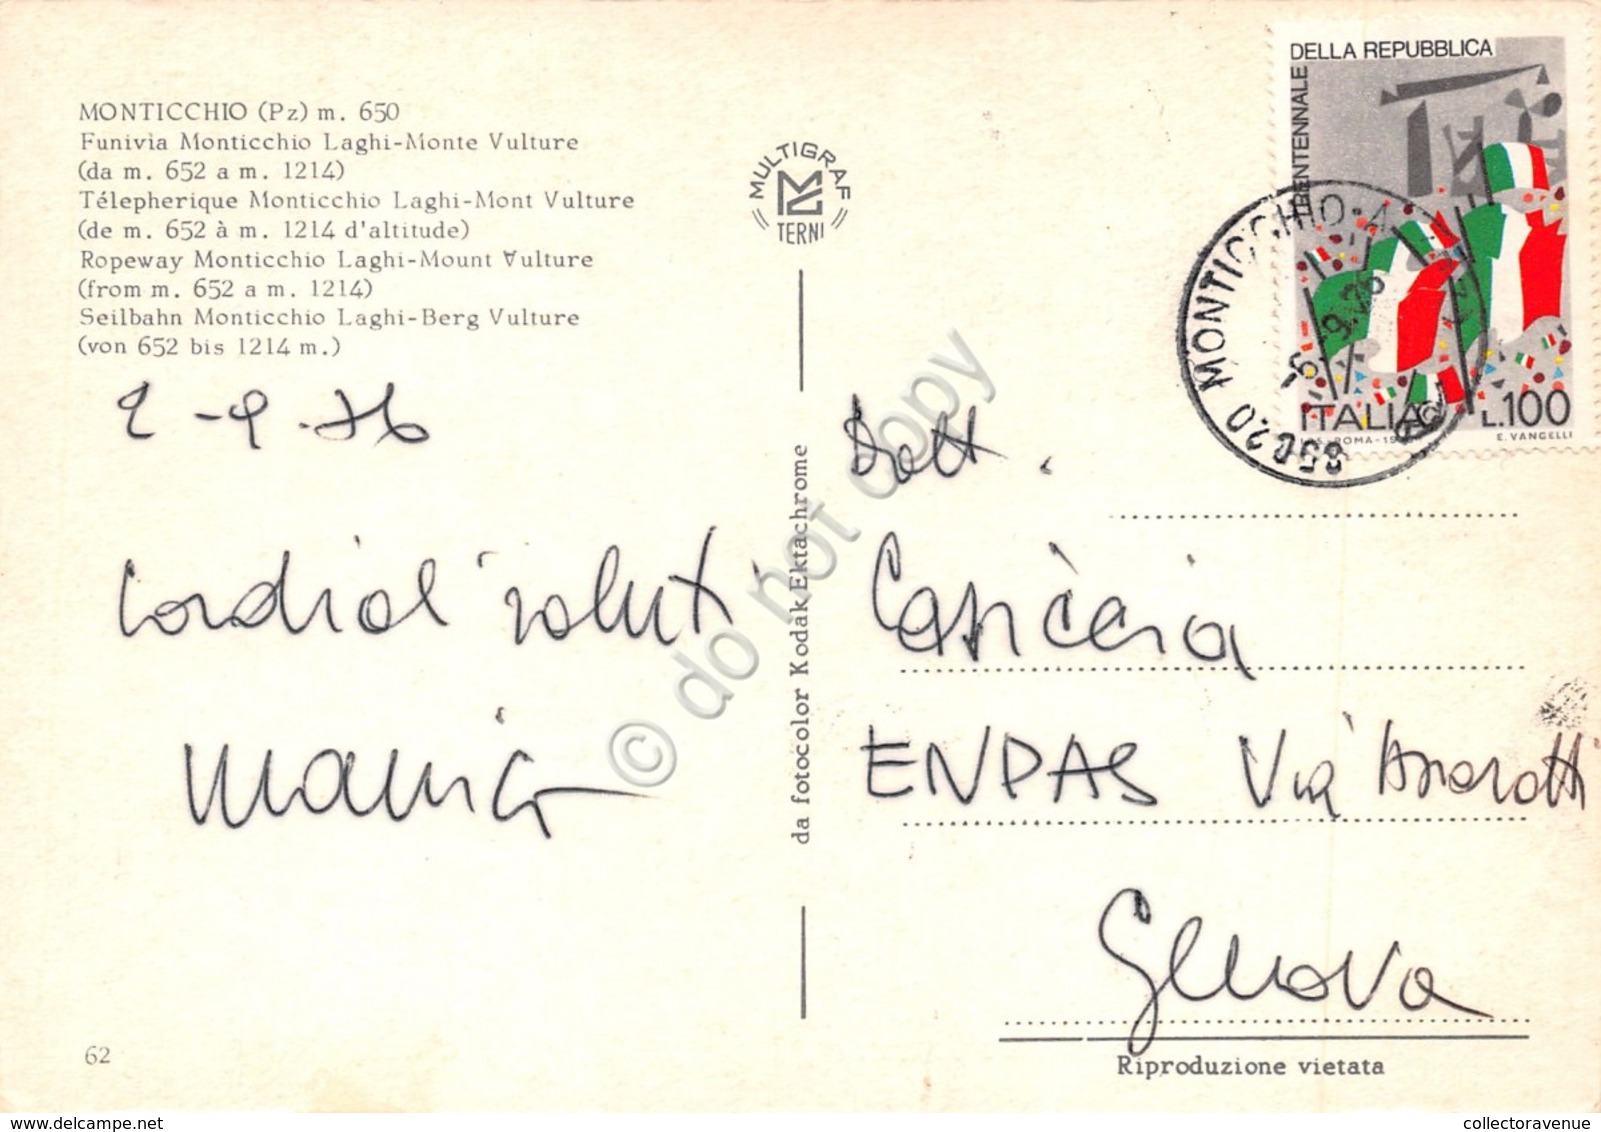 MONTICCHIO (Pz) m. 650
Funivia Monticchio Laghi-Monte Vulture
(da m. 652 a m. 1214)
Télepherique Monticchio Laghi-Mont Vulture
(de m. 652 à m. 1214 d'altitude)
Ropeway Monticchio Laghi-Mount Vulture
(from m. 652 a m. 1214)
Seilbahn Monticchio Laghi-Berg Vulture
(von 652 bis 1214 m.)
2-9-76
cordiali saluti
62
MULTIGRAF
TERNI
da fotocolor Kodak Ektachrome
© do not copy
TRENTENNALE DELLA REPUBBLICA
ITALIA L.100
ROMA
E. VANGELLI
85020 MONTICCHIO
9.76
Dott.
ENPAS Via
Genova
Riproduzione vietata
collectoravenue.com